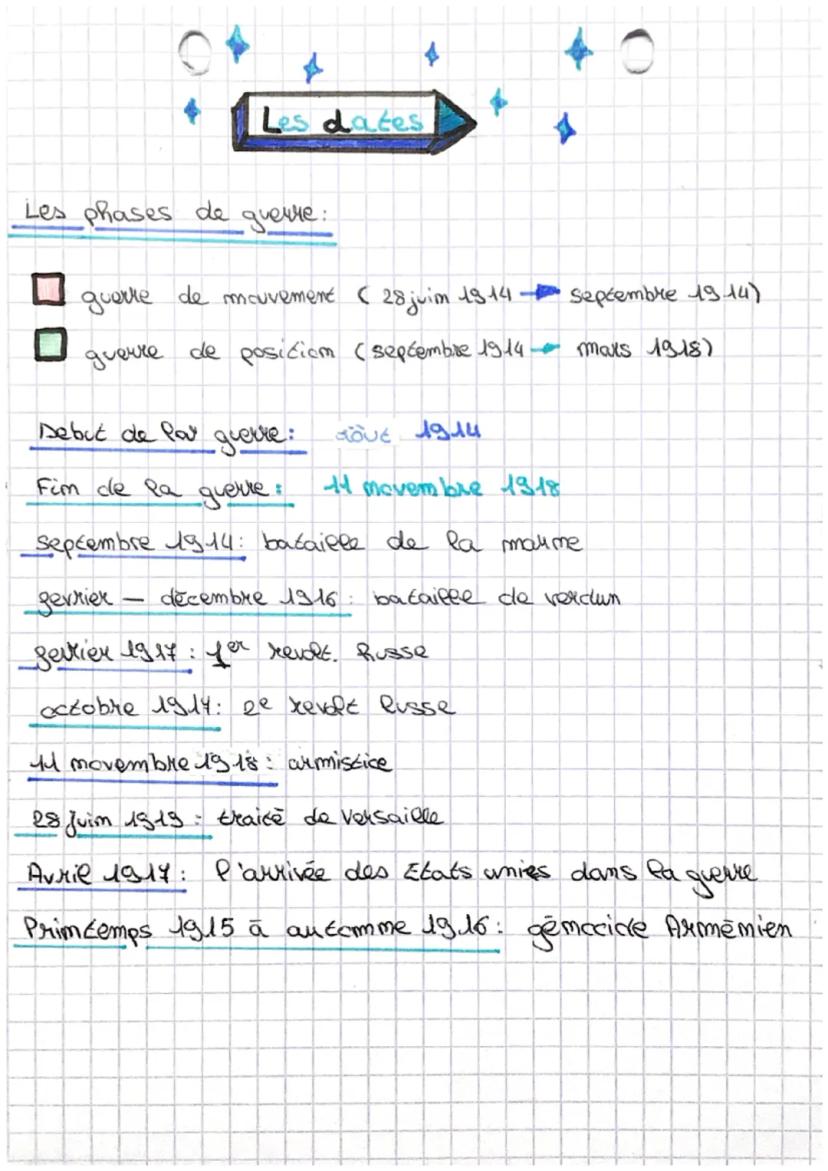 Les dates
Les phases de guerre:
guerre de mouvement ( 28 juin 1914 → septembre 1914)
guerre de position (septembre 1914 → mars 1918)
Debut de la guerre: août 1914
Fin de la guerre: 11 novembre 1918
septembre 1914: bataille de la marne
fevrier - décembre 1916: bataille de verdun
fevrier 1917: 1er revolt. Russe
octobre 1917: 2e revolt Russe
11 novembre 1918: armistice
28 Juin 1919: traité de Versaille
Avril 1917: l'arrivée des Etats unies dans la guerre
Printemps 1915 à automne 1916: génocide Arménien